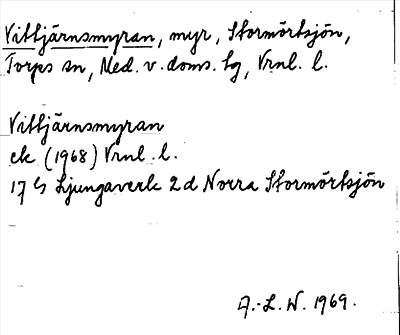 Vittjärnsmyran, myr, Stormörtsjön,
Torps sn, Med. v. doms. tg, Vrnl. l.
Vittjärnsmyran
ek (1968) Vrnl. l.
17 G Ljungaverk 2 d Norra Stormörtsjön
A.-L. W. 1969.